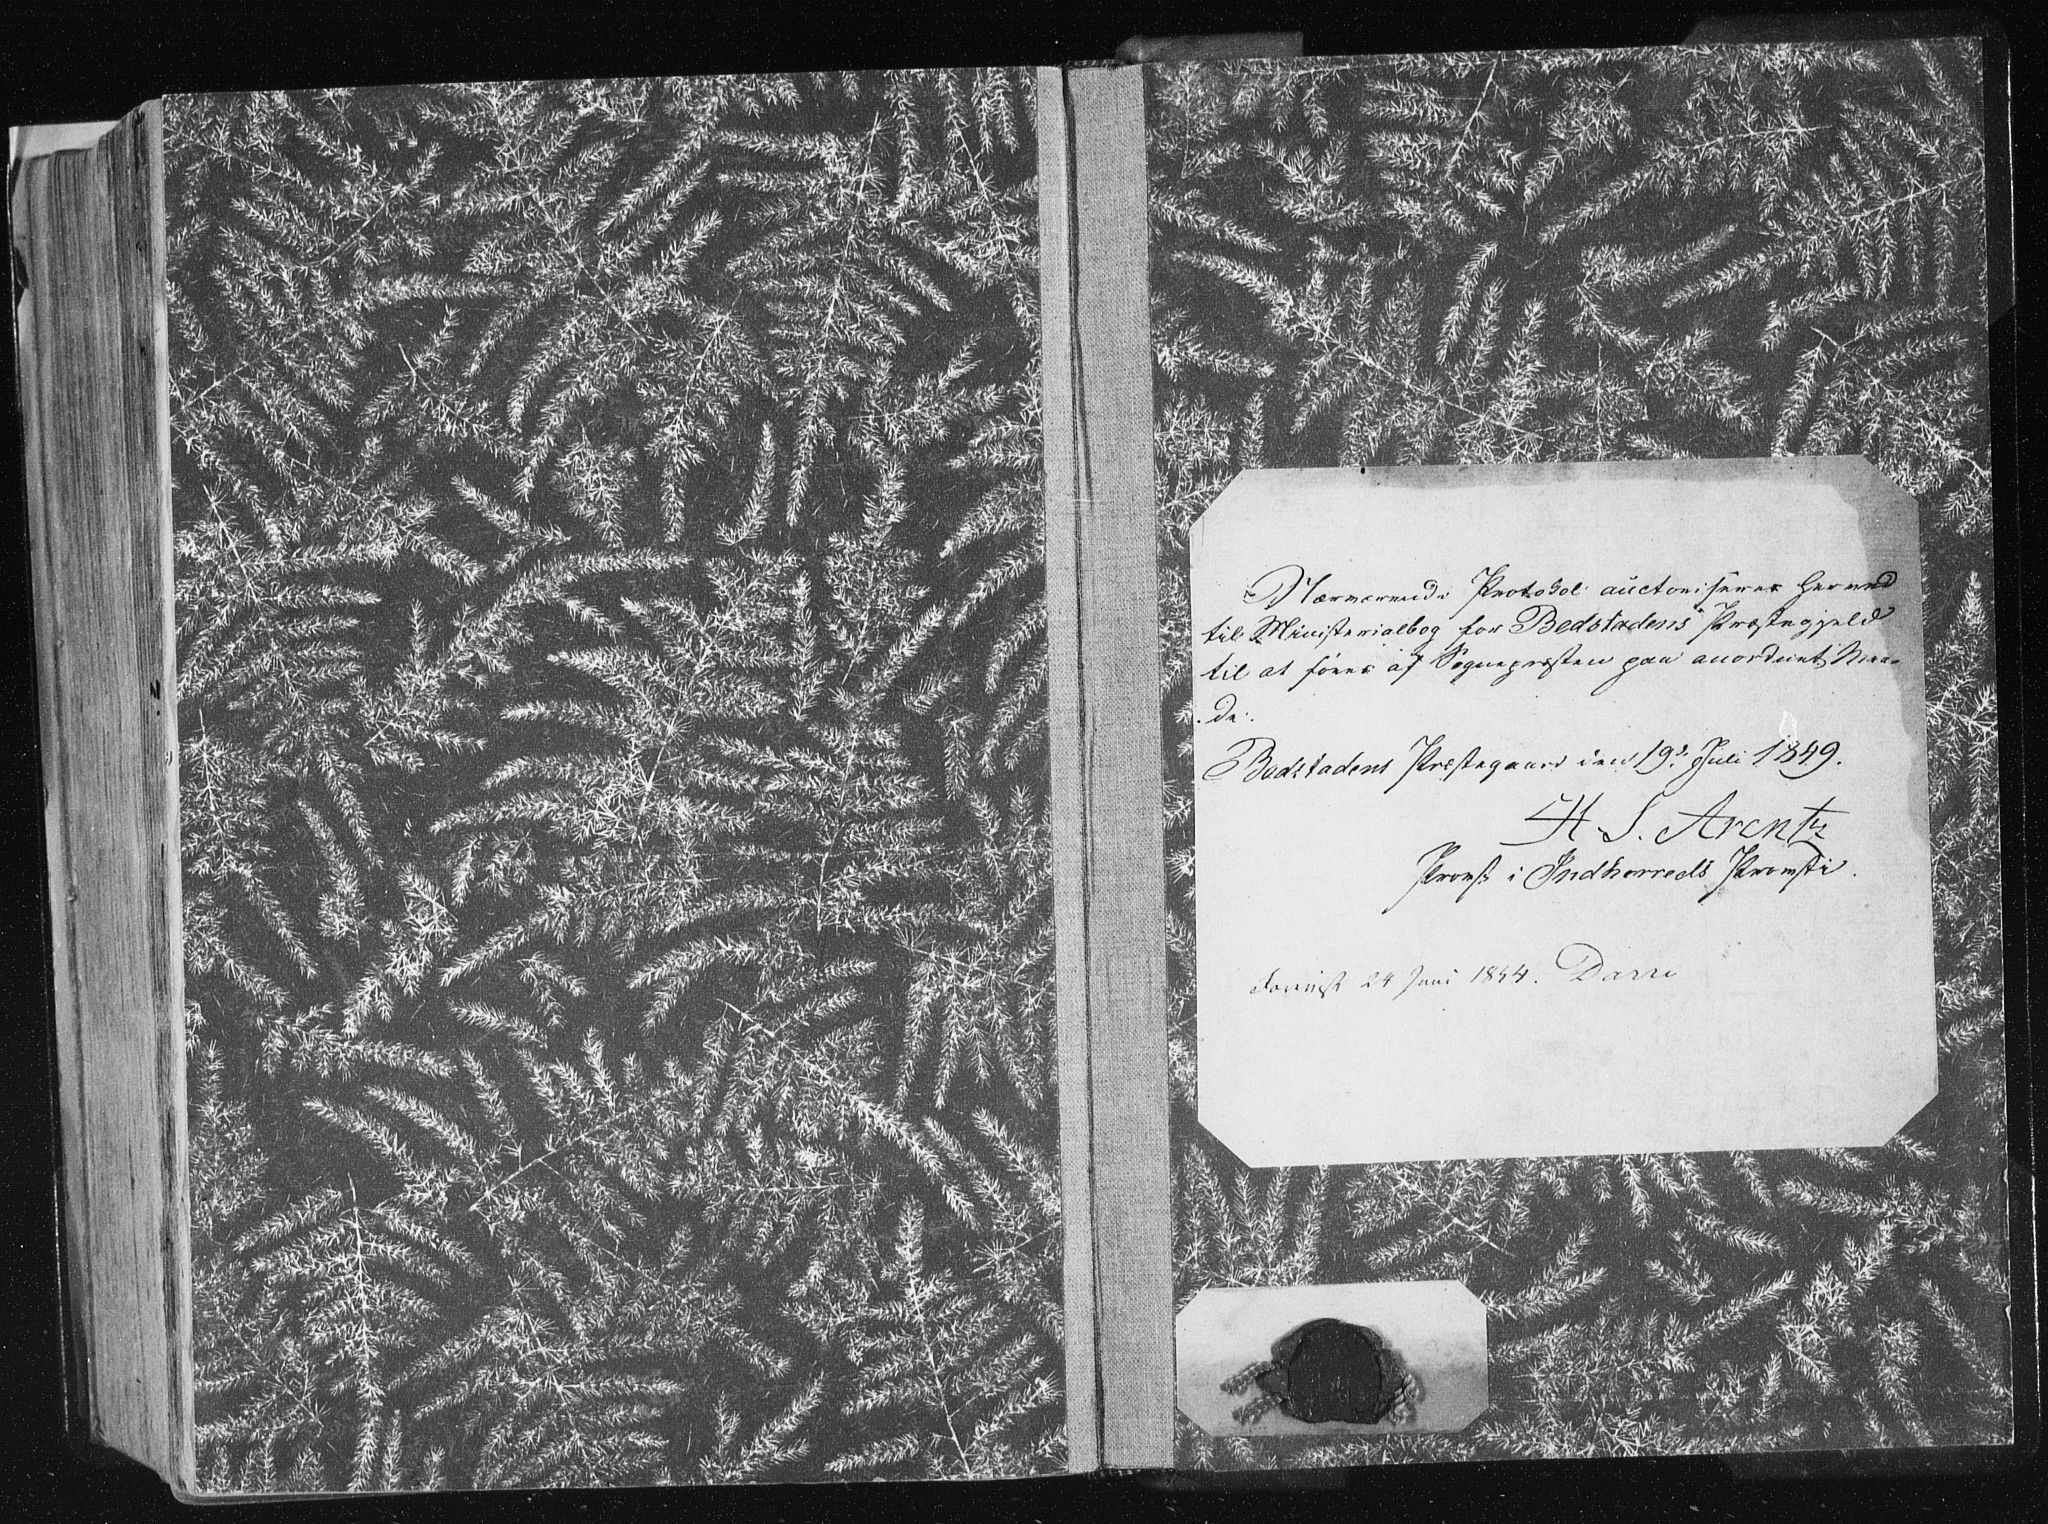 Nærværende Protocol auctoriseres herved
til Ministerialbog for Bedstadens Præstegjeld
til at føres af Sognepræsten paa anordnet Maa-
de.
Bedstadens Præstegaard den 19de Juli 1849.
H S. Arentz
Provst i Indherreds Provsti.
24 Juni 1854. Darre